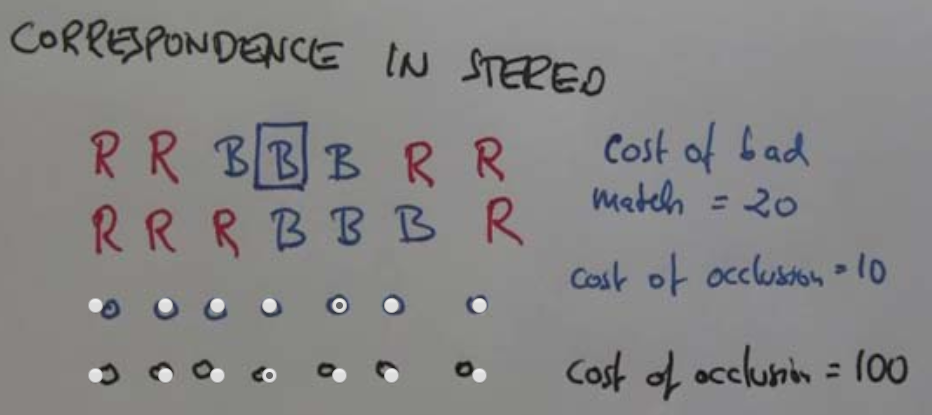 CORRESPONDENCE IN STEREO
R R B B B R R
R R R B B B R
Cost of bad
match = 20
cost of occlusion = 10
cost of occlusion = 100